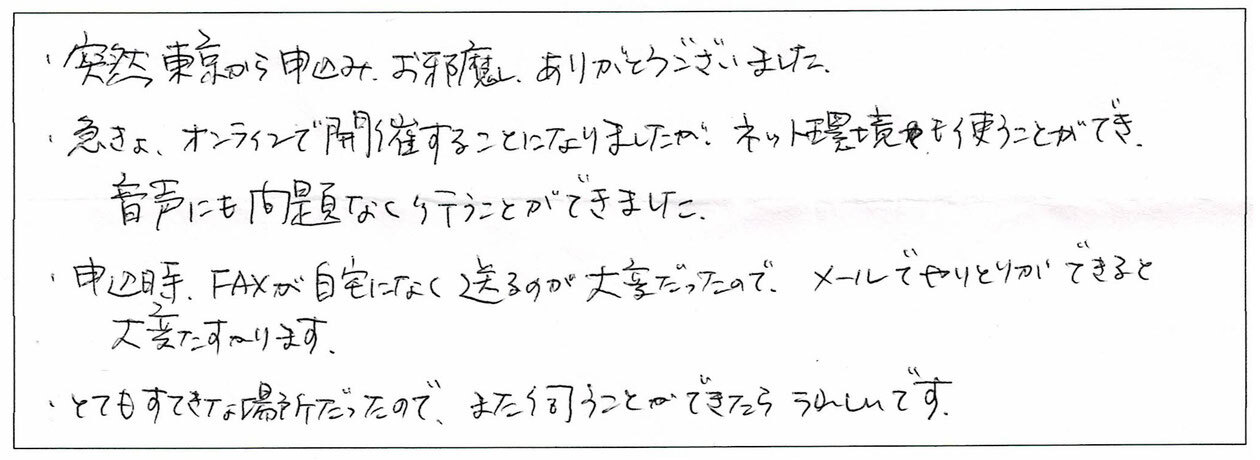 ・突然東京から申込み、お邪魔し、ありがとうございました。
・急きょ、オンラインで開催することになりましたが、ネット環境も使うことができ、
音声にも問題なく行うことができました。
・申込時、FAXが自宅になく送るのが大変だったので、メールでやりとりができると
大変たすかります。
・とてもすてきな場所だったので、また伺うことができたらうれしいです。